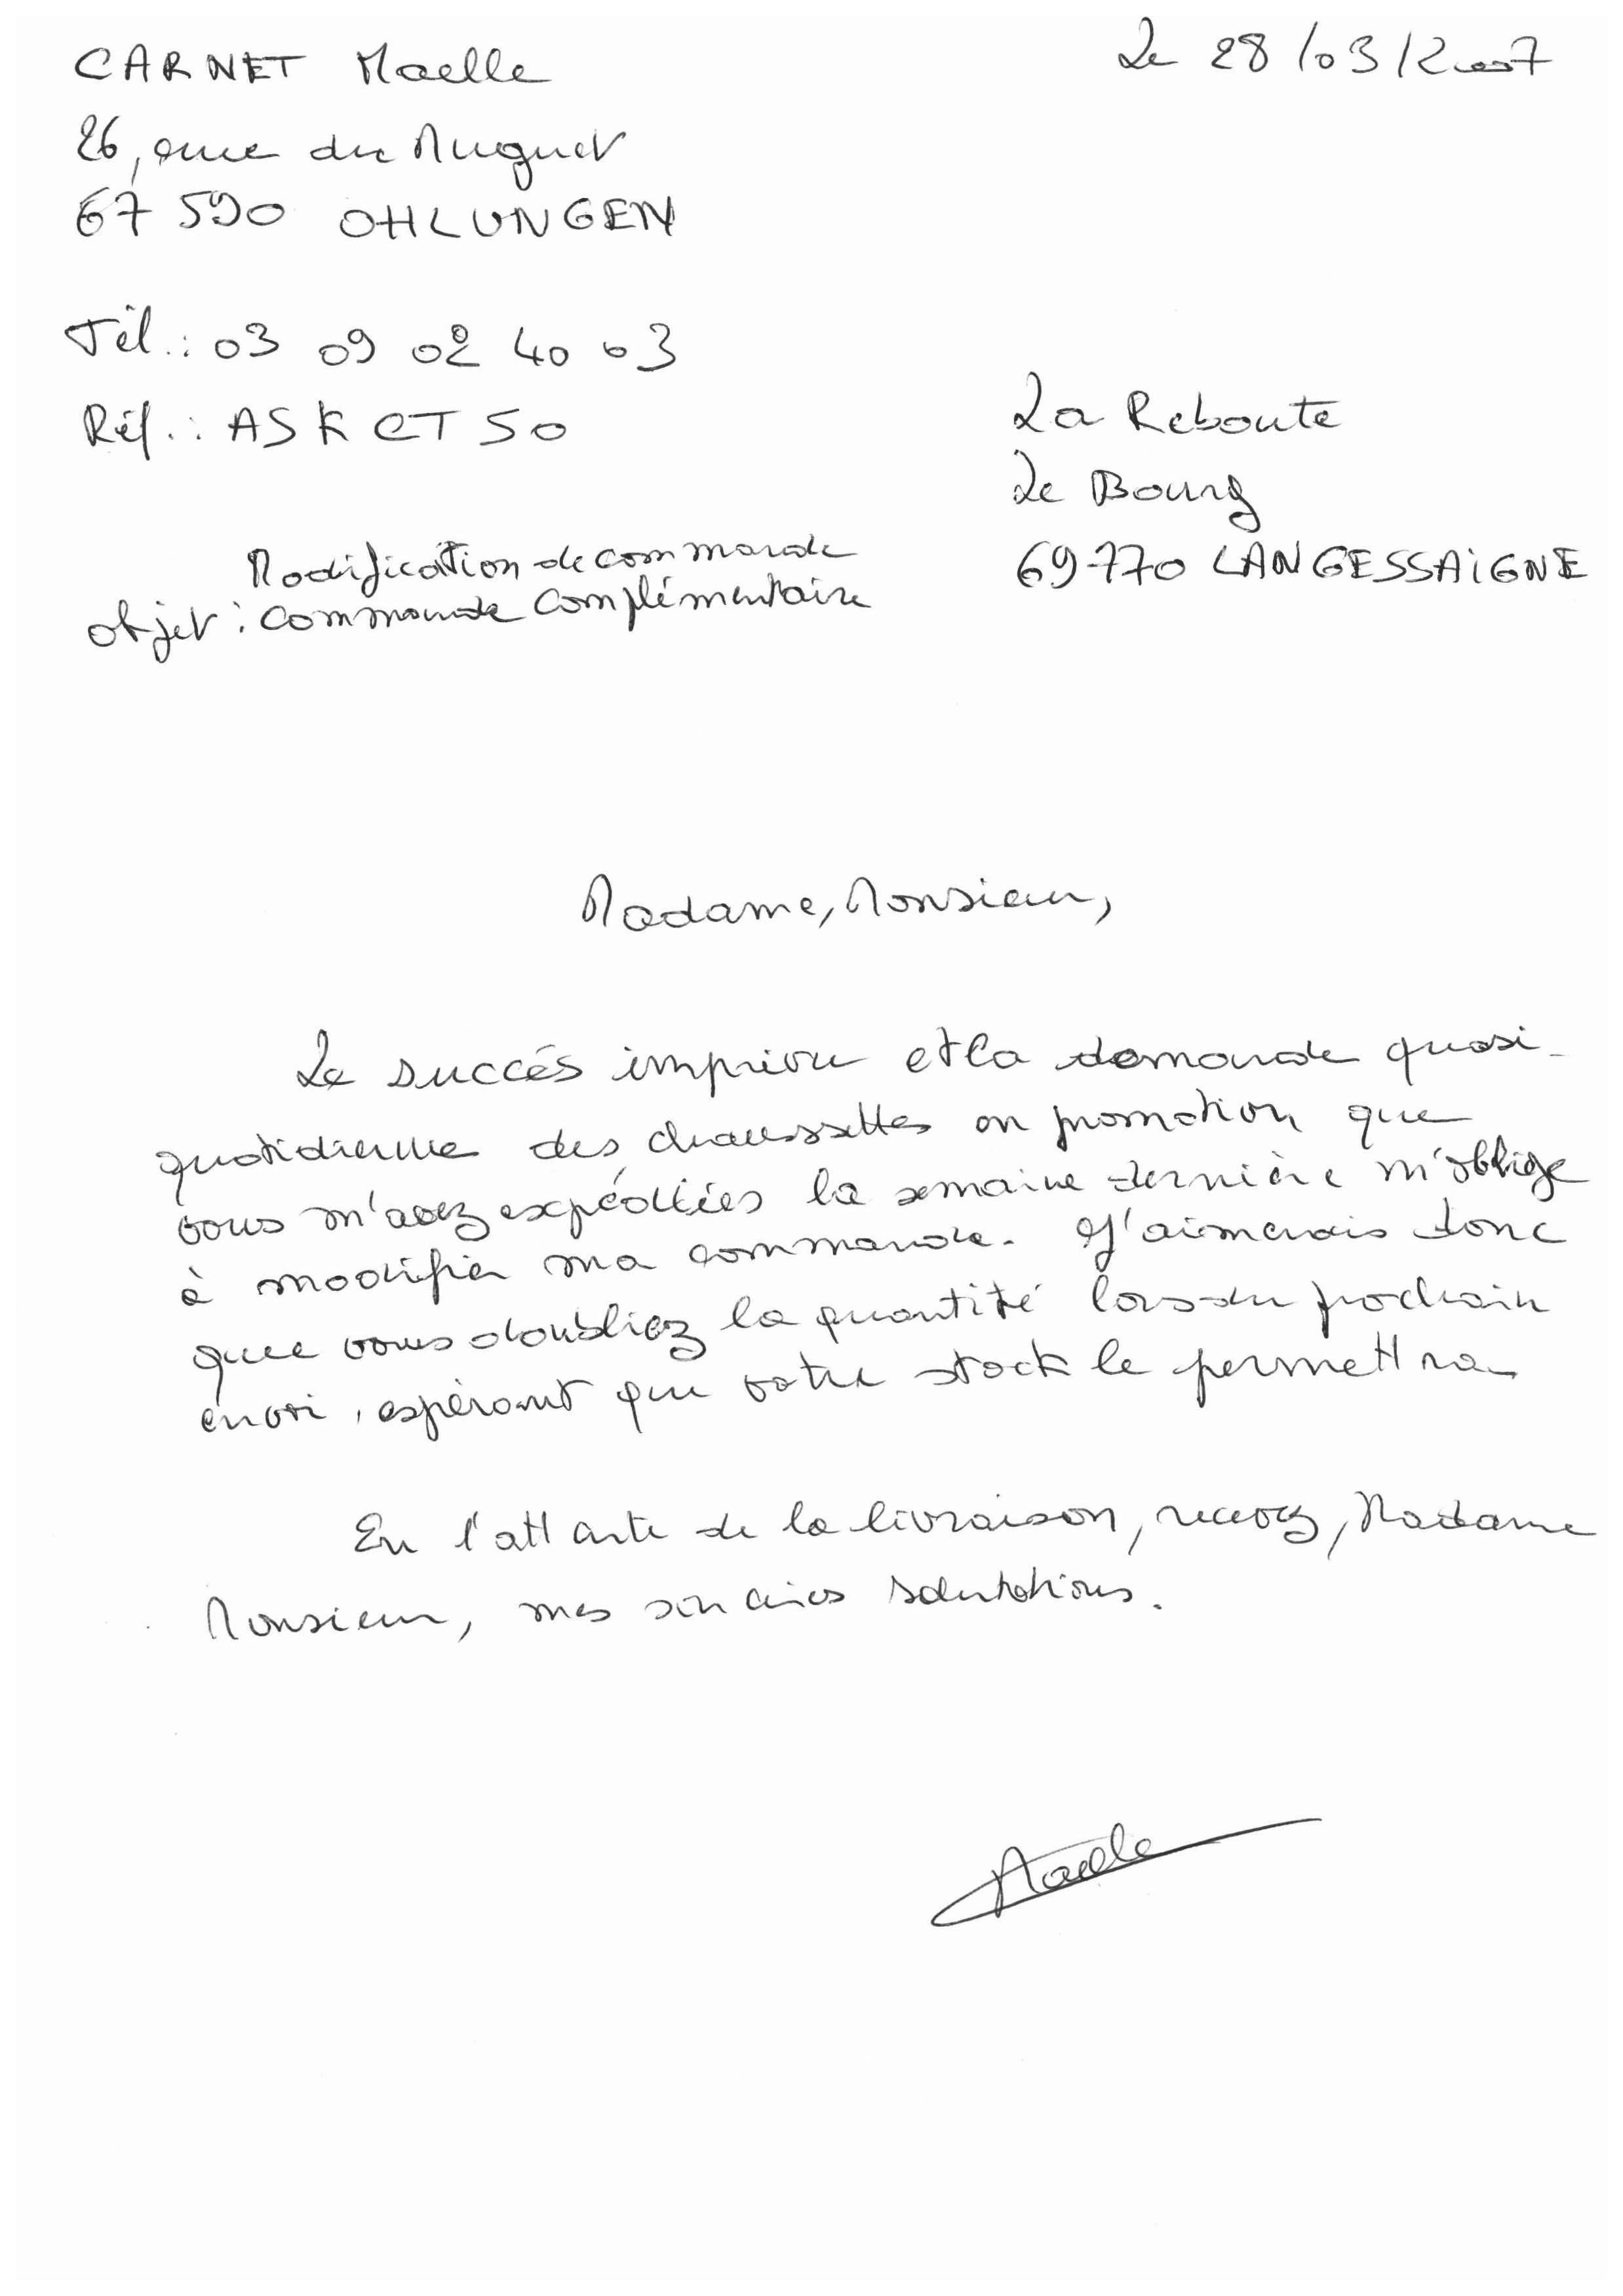 CARNET Maelle
Le 28/03/2007
26, rue du Muguet
67 590 OHLUNGEN
Tél.: 03 09 02 40 03
Réf.: ASKCT50
La Reboute
Le Bourg
69770 LANGESSAIGNE
Modification de commande
objet: commande complémentaire
Madame, Monsieur,
Le succès imprévu et la demande quasi-
quotidienne des chaussettes en promotion que
vous m'avez expédiées la semaine dernière m'oblige
à modifier ma commande. J'aimerais donc
que vous doubliez la quantité lors du prochain
envoi, espérant que votre stock le permettra
En l'attente de la livraison, recevez, Madame
Monsieur, mes sincères salutations.
Maelle